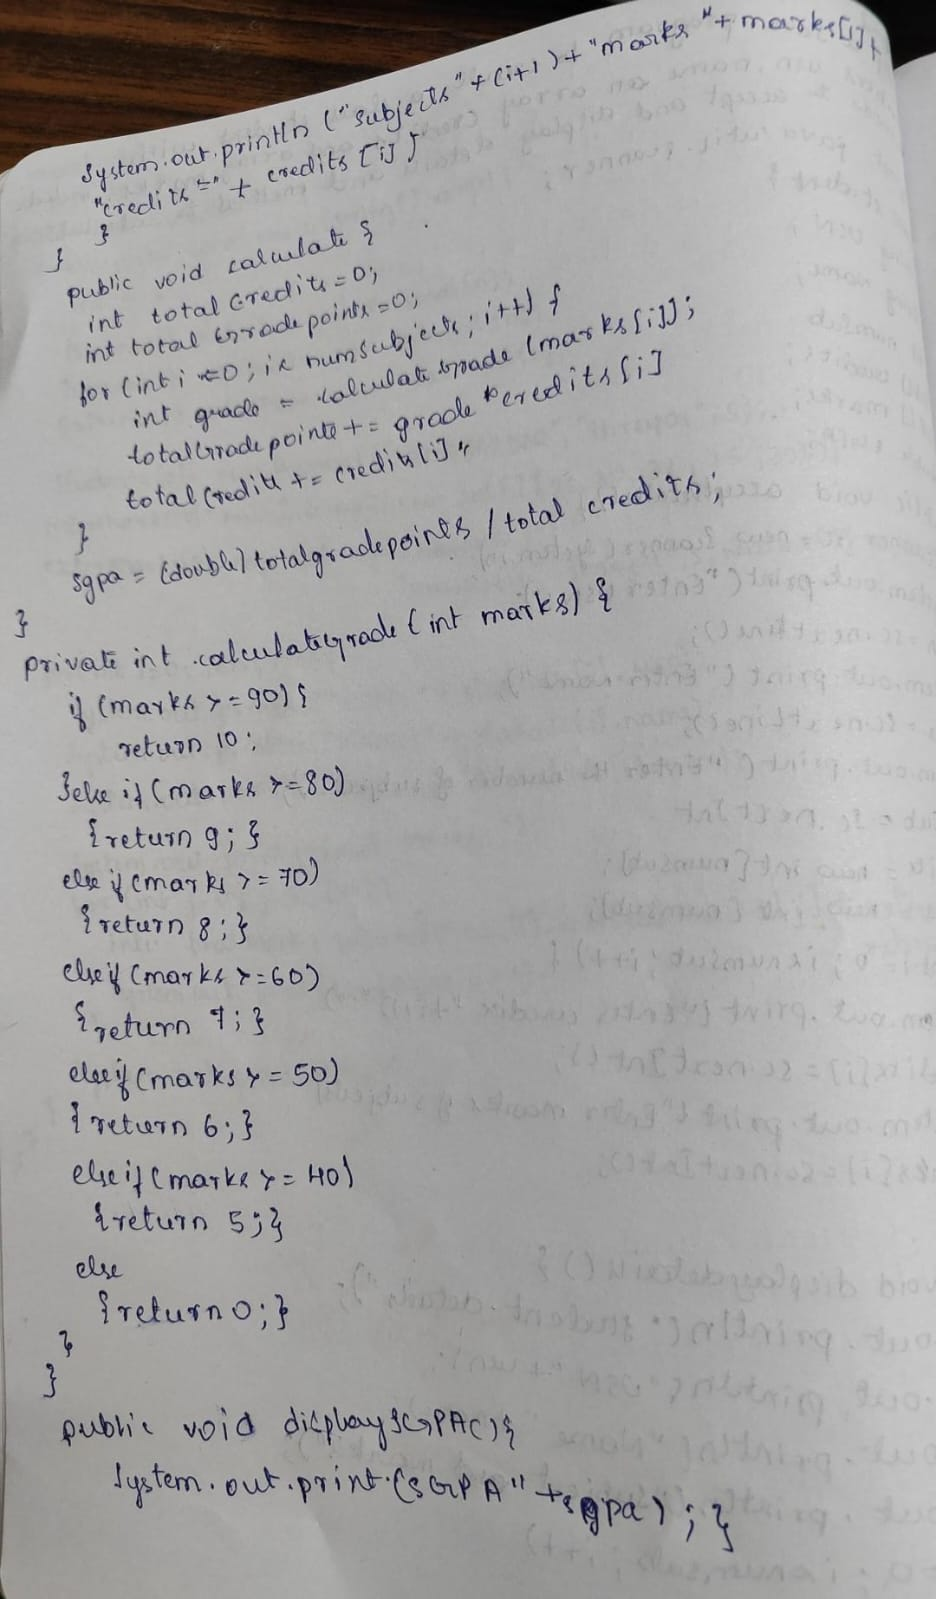 System.out.println ("subjects" + (i+1) + "marks" + marks[i] +
"credits =" + credits [i] }
}
}
public void calculate {
int total Credits = 0;
int total Gradepoints = 0;
for (int i = 0; i < numsubjects; i++) {
int grade = calculate Grade (marks[i]);
totalGradepoints += grade * credits[i]
total Credits += credits[i];
}
sgpa = (double) totalgradepoints / total credits;
}
private int calculateGrade (int marks) {
if (marks >= 90) {
return 10;
}else if (marks >= 80)
{return 9; }
else if (marks >= 70)
{return 8; }
else if (marks >= 60)
{return 7; }
else if (marks >= 50)
{return 6; }
else if (marks >= 40)
{return 5; }
else
{return 0; }
}
}
public void displaySGPA() {
System.out.print (SGPA" + sgpa) ; }